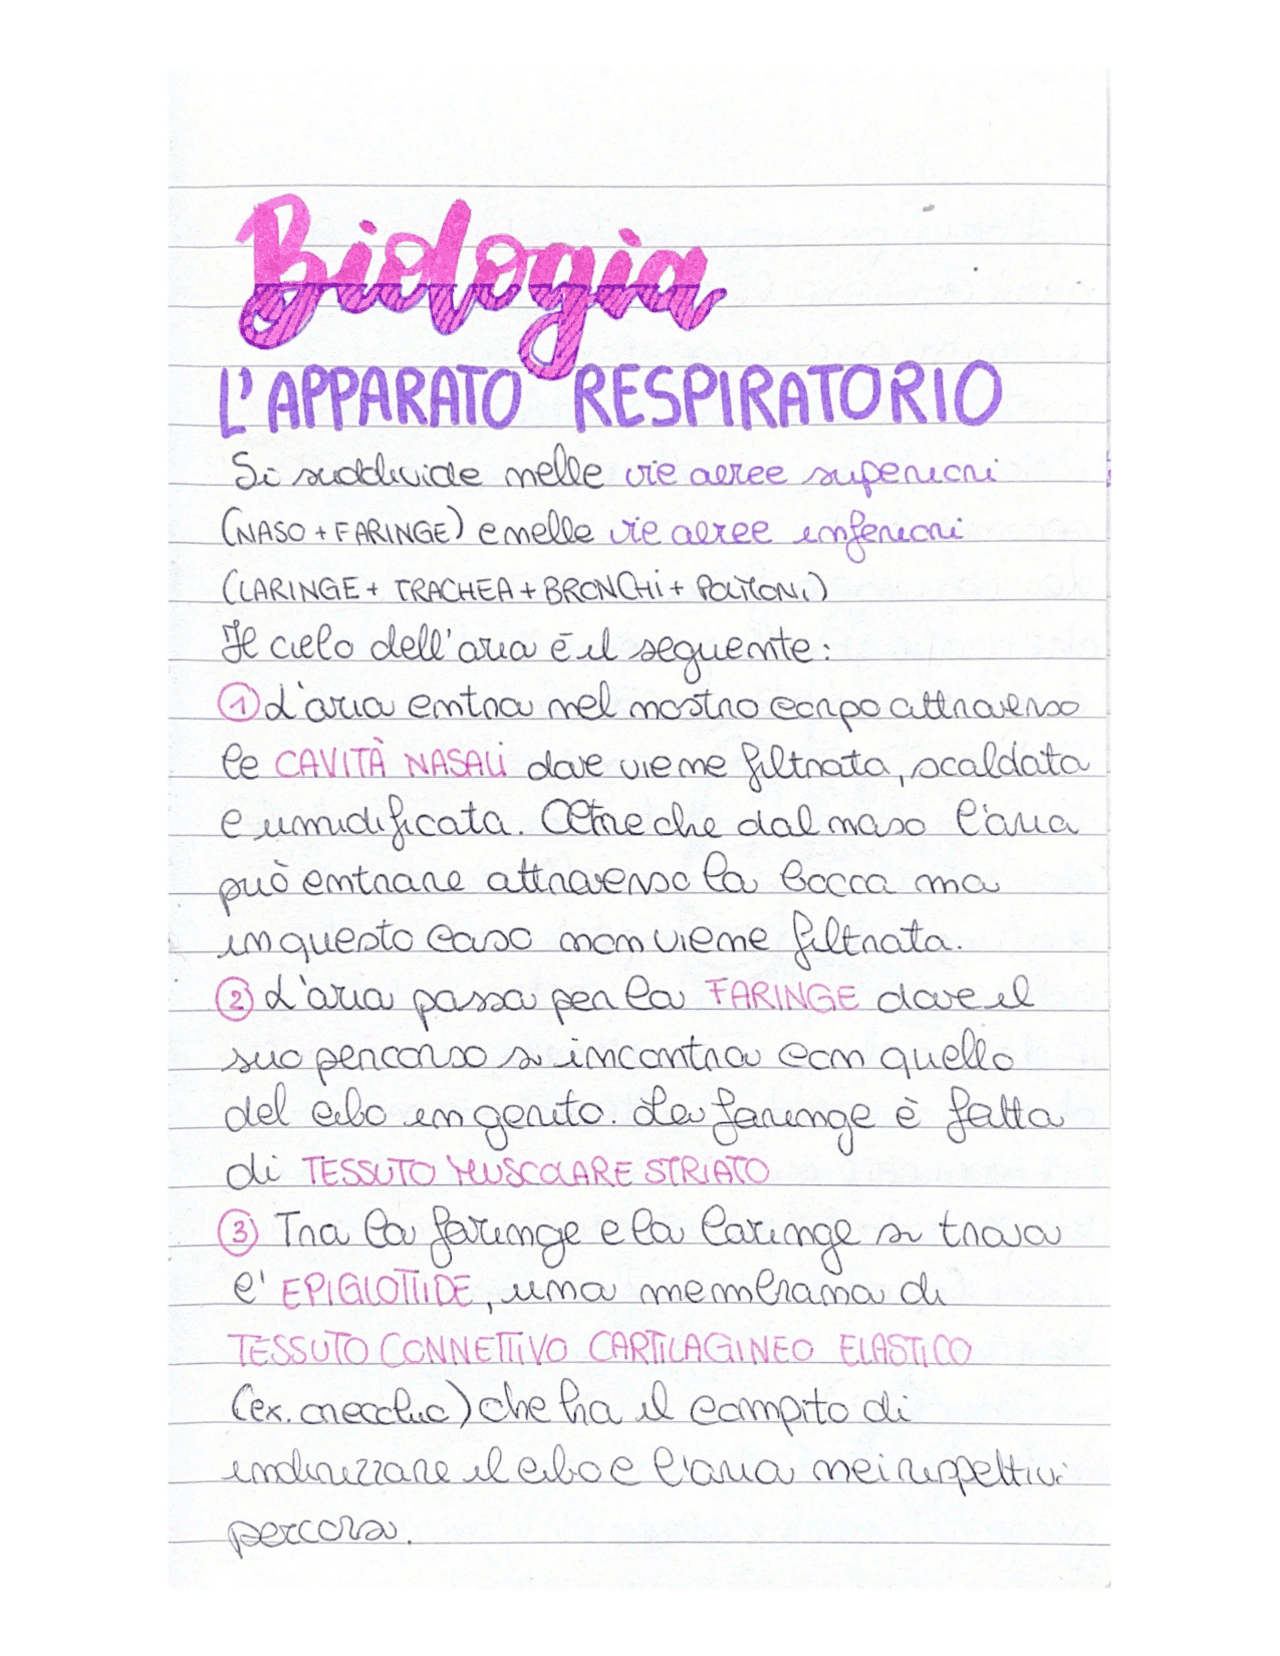 Biologia
L'APPARATO RESPIRATORIO
Si suddivide nelle vie aeree superiori
(NASO + FARINGE) e nelle vie aeree inferiori
(LARINGE + TRACHEA + BRONCHI + POLMONI)
Il ciclo dell'aria è il seguente:
① L'aria entra nel nostro corpo attraverso
le CAVITÀ NASALI dove viene filtrata, scaldata
e umidificata. Oltre che dal naso l'aria
può entrare attraverso la bocca ma
in questo caso non viene filtrata.
② L'aria passa per la FARINGE dove il
suo percorso si incontra con quello
del cibo ingerito. La faringe è fatta
di TESSUTO MUSCOLARE STRIATO
③ Tra la faringe e la laringe si trova
l' EPIGLOTTIDE, una membrana di
TESSUTO CONNETTIVO CARTILAGINEO ELASTICO
(ex. orecchio) che ha il compito di
indirizzare il cibo e l'aria nei rispettivi
percorsi.